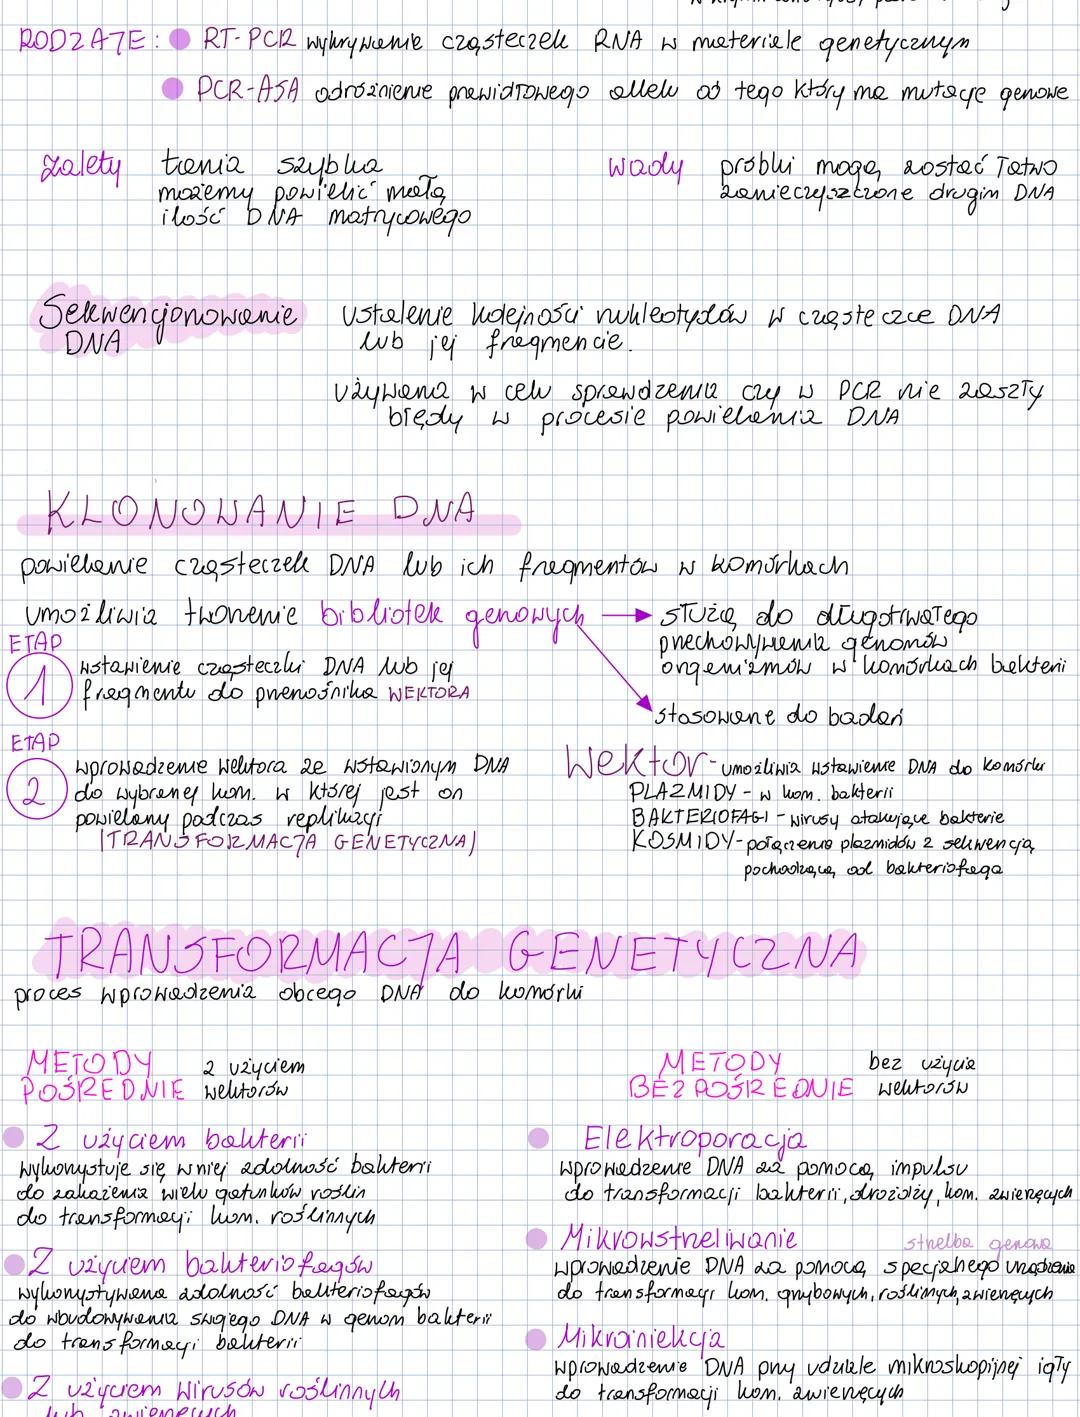 RODZAJE: RT-PCR wykrywanie cząsteczek RNA w materiale genetycznym
PCR-ASA odróżnienie prawidłowego allelu od tego który ma mutację genową
zalety
tania szybka
możemy powielić małą
ilość DNA matrycowego
wady
próbki mogą zostać łatwo
zanieczyszczone drugim DNA
Sekwencjonowanie
DNA
ustalenie kolejności nukleotydów w cząsteczce DNA
lub jej fragmencie.
używana w celu sprawdzenia czy w PCR nie zaszły
błędy w procesie powielania DNA
KLONOWANIE DNA
powielanie cząsteczek DNA lub ich fragmentów w komórkach
umożliwia tworzenie bibliotek genowych
służą do długotrwałego
przechowywania genomów
organizmów w komórkach bakterii
stosowane do badań
ETAP
1
wstawienie cząsteczki DNA lub jej
fragmentu do przenośnika WEKTORA
ETAP
2
wprowadzenie wektora ze wstawionym DNA
do wybranej kom. w której jest on
powielany podczas replikacji
|TRANSFORMACJA GENETYCZNA|
Wektor - umożliwia wstawienie DNA do komórki
PLAZMIDY - w kom. bakterii
BAKTERIOFAGI - wirusy atakujące bakterie
KOSMIDY - połączenie plazmidów z sekwencją
pochodzącą od bakteriofaga
TRANSFORMACJA GENETYCZNA
proces wprowadzenia obcego DNA do komórki
METODY
POŚREDNIE
z użyciem
wektorów
Z użyciem bakterii
wykorzystuje się w niej zdolność bakterii
do zakażenia wielu gatunków roślin
do transformacji kom. roślinnych
Z użyciem bakteriofagów
wykorzystywana zdolność bakteriofagów
do wbudowywania swojego DNA w genom bakterii
do transformacji bakterii
Z użyciem wirusów roślinnych
lub zwierzęcych
METODY
BEZPOŚREDNIE
bez użycia
wektorów
Elektroporacja
wprowadzenie DNA za pomocą impulsu
do transformacji bakterii, drożdży, kom. zwierzęcych
Mikrowstrzeliwanie strzelba genowa
wprowadzenie DNA za pomocą specjalnego urządzenia
do transformacji kom. grzybowych, roślinnych, zwierzęcych
Mikroiniekcja
wprowadzenie DNA przy udziale mikroskopijnej igły
do transformacji kom. zwierzęcych